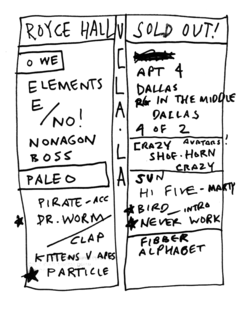 ROYCE HALL
O WE
ELEMENTS
E
/NO!
NONAGON
BOSS
PALEO
PIRATE - ACC
★ DR. WORM
/CLAP
KITTENS V APES
★ PARTICLE
UCLA.LA
SOLD OUT!
APT 4
DALLAS
IN THE MIDDLE
DALLAS
4 OF 2
CRAZY AVATARS!
SHOE-HORN
CRAZY
SUN
HI FIVE - MARTY
★ BIRD _ INTRO
★ NEVER WORK
FIBBER
ALPHABET